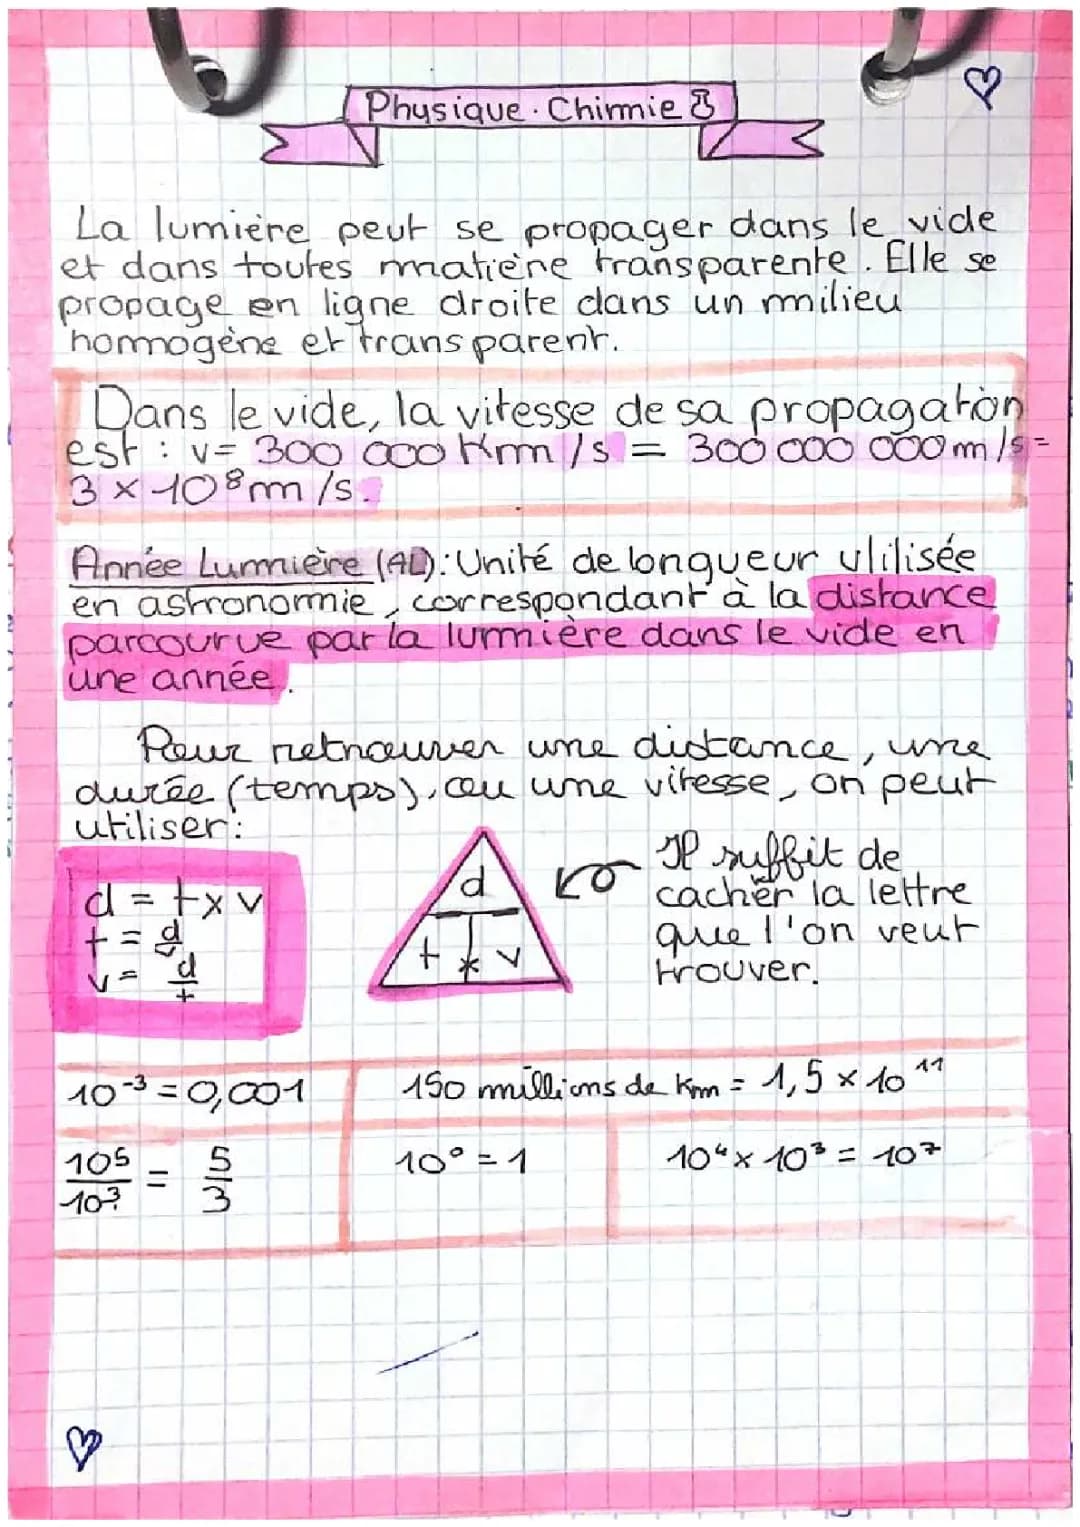 Physique. Chimie
La lumière peut se propager dans le vide
et dans toutes matière transparente. Elle se
propage en ligne droite dans un milieu
homogène et transparent.
Dans le vide, la vitesse de sa propagation
est : v= 300 000 Km/s = 300 000 000 m/s =
3 × 10⁸ m/s.
Année Lumière (AL): Unité de longueur utilisée
en astronomie, correspondant à la distance
parcourue par la lumière dans le vide en
une année.
Pour retrouver une distance, une
durée (temps), ou une vitesse, on peut
utiliser:
d = t x v
t = d/v
v = d/t
d
t * v
Il suffit de
cacher la lettre
que l'on veut
trouver.
10⁻³ = 0,001
150 millions de Km = 1,5 × 10¹¹
10⁵/10³ = 5/3
10⁰ = 1
10⁴ x 10³ = 10⁷